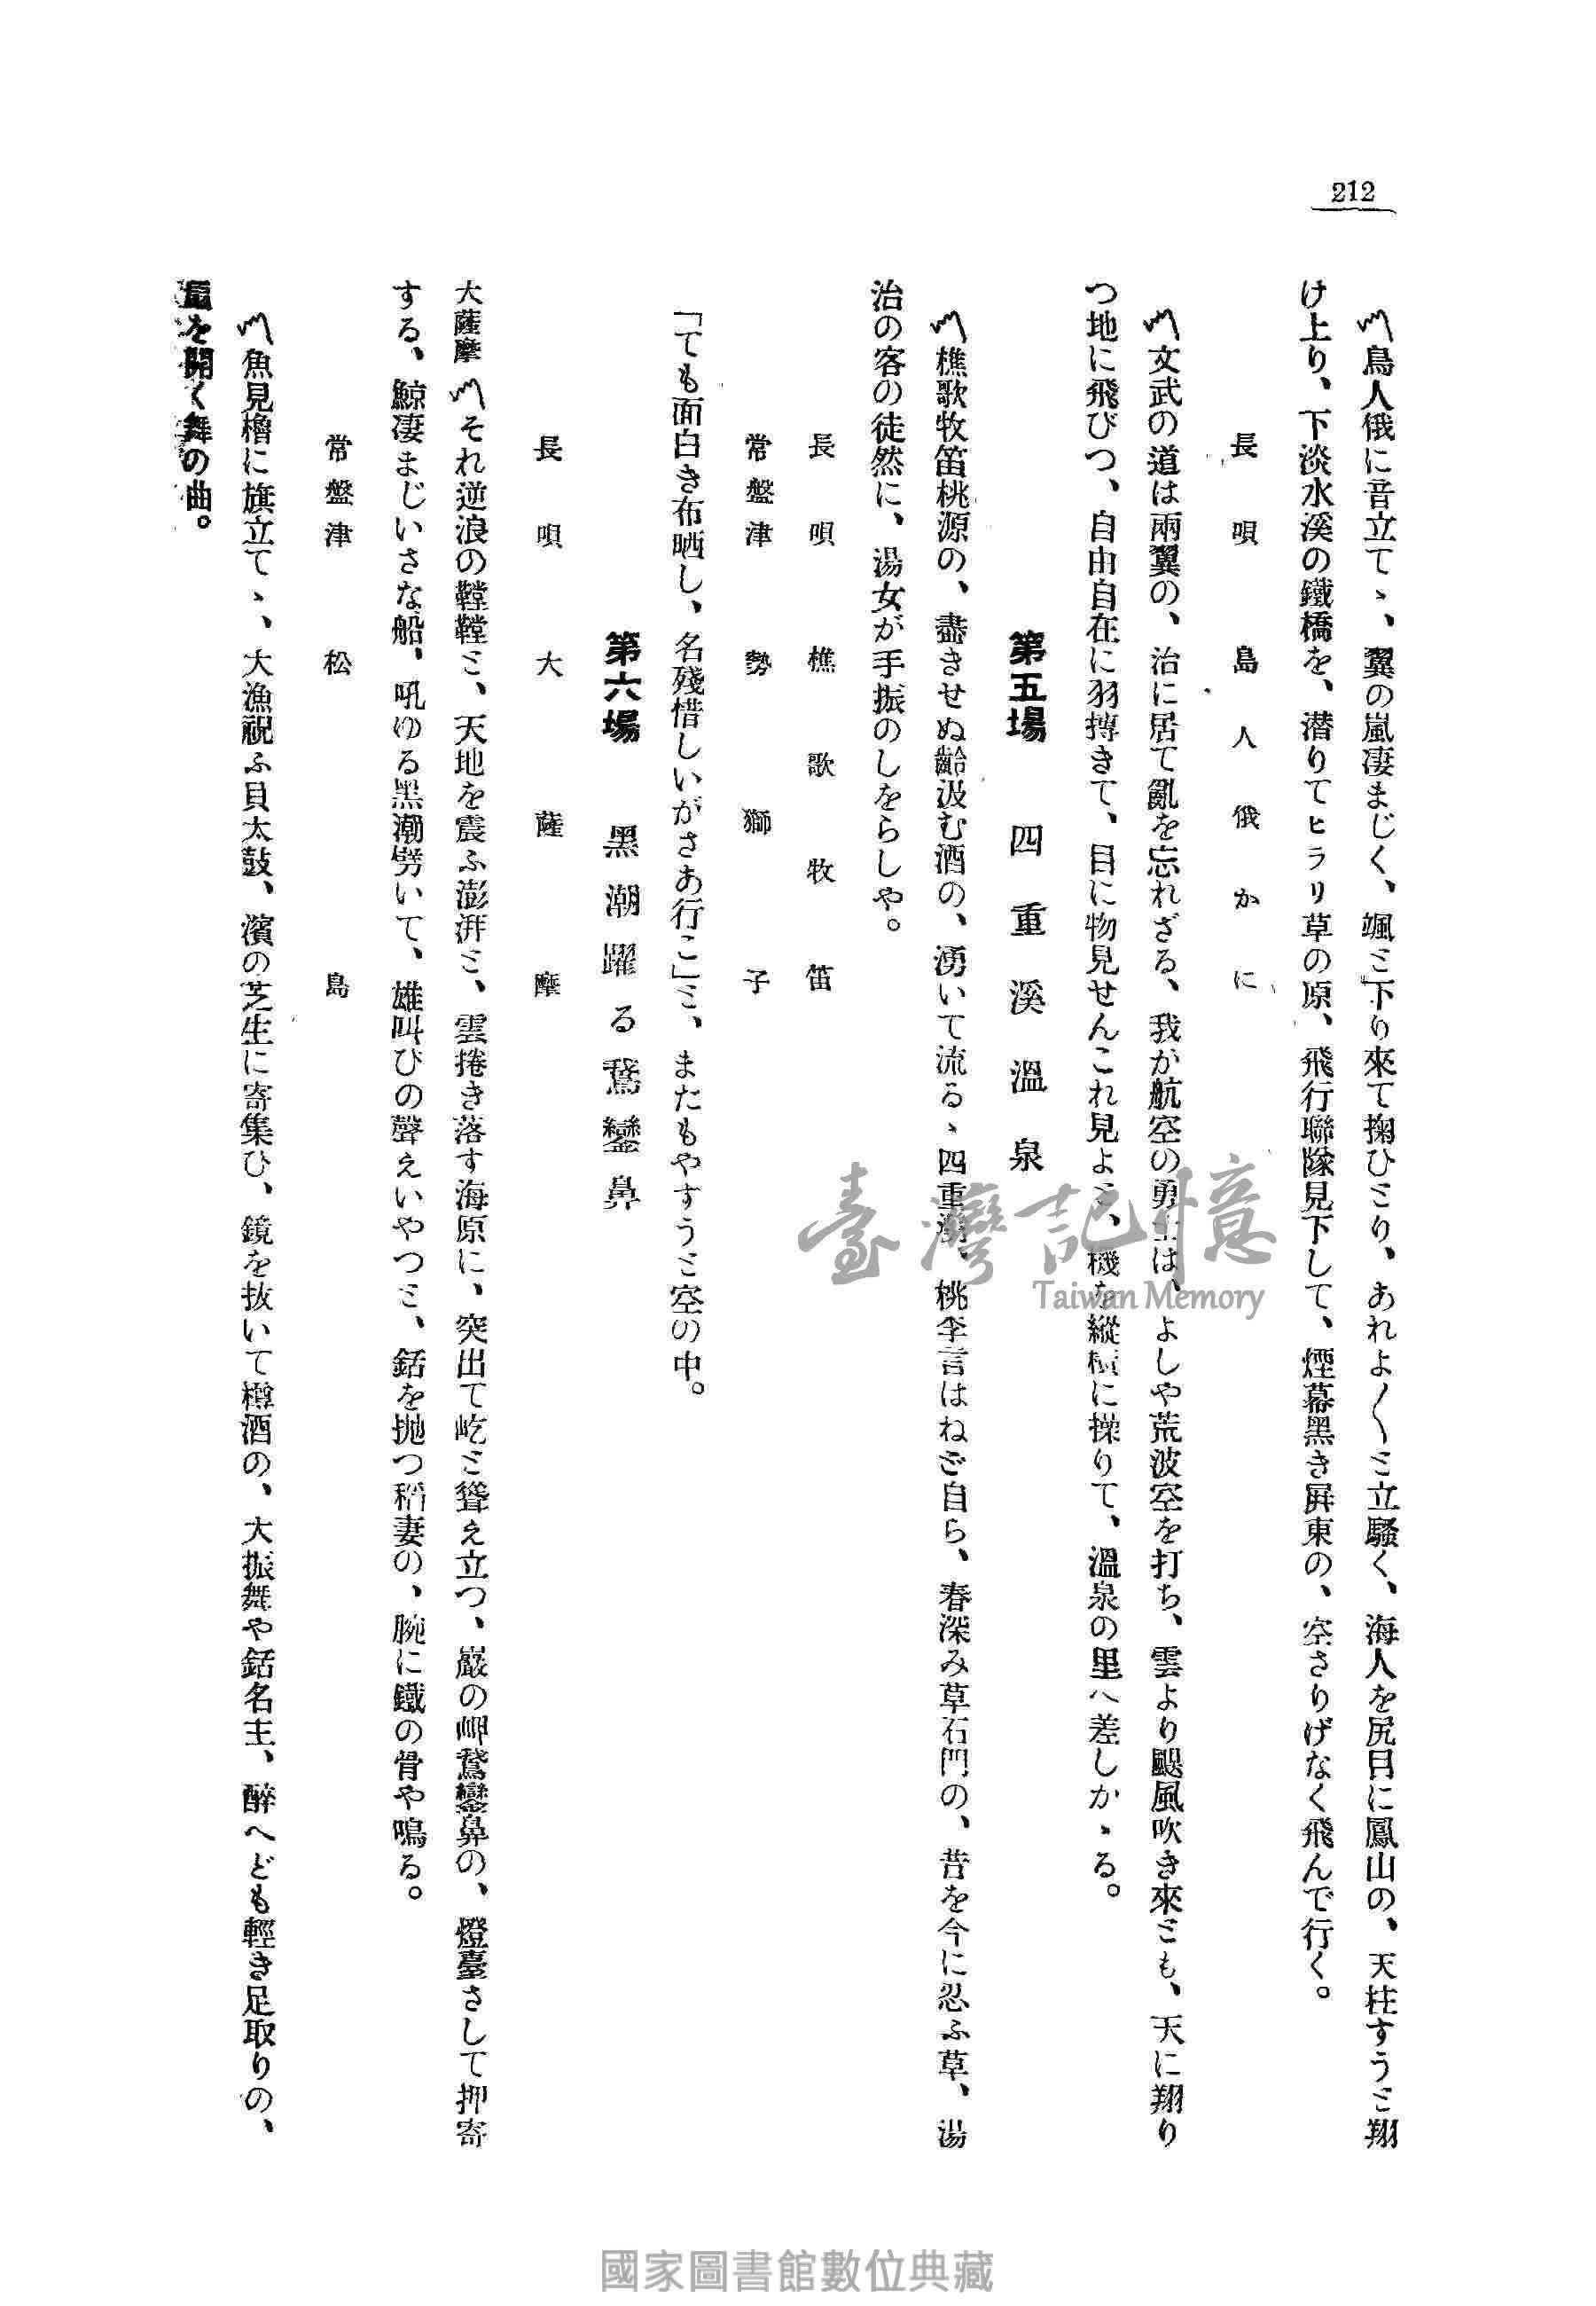 212
〽鳥人俄に音立てゝ、翼の嵐凄まじく、颯ミ下り來て掬ひミり、あれよ〱ミ立騷く、海人を尻目に鳳山の、天柱すうミ翔
け上り、下淡水溪の鐵橋を、潜りてヒラリ草の原、飛行聯隊見下して、煙幕黑き屏東の、空さりげなく飛んで行く。
長唄 鳥人俄かに
〽文武の道は兩翼の、治に居て亂を忘れざる、我が航空の勇士は、よしや荒波空を打ち、雲より颶風吹き來ミも、天に翔り
つ地に飛びつ、自由自在に羽搏きて、目に物見せんこれ見よミ、機を縱橫に操りて、溫泉の里へ差しかゝる。
第五場 四重溪溫泉
〽樵歌牧笛桃源の、盡きせぬ齡汲む酒の、湧いて流るゝ四重溪、桃李言はねど自ら、春深み草石門の、昔を今に忍ふ草、湯
治の客の徒然に、湯女が手振のしをらしや。
長唄 樵歌牧笛
常盤津 勢獅子
「ても面白き布晒し、名殘惜しいがさあ行こ」ミ、またもやすうミ空の中。
第六場 黑潮躍る鵞鑾鼻
長唄 大薩摩
大薩摩 〽それ逆浪の鞺鞺ミ、天地を震ふ澎湃ミ、雲捲き落す海原に、突出て屹ミ聳え立つ、巖の岬鵞鑾鼻の、燈臺さして押寄
する、鯨凄まじいさな船、吼ゆる黑潮劈いて、雄叫びの聲えいやつミ、銛を抛つ稻妻の、腕に鐵の骨や鳴る。
常盤津 松島
〽魚見櫓に旗立てゝ、大漁祝ふ貝太鼓、濱の芝生に寄集ひ、鏡を抜いて樽酒の、大振舞や銛名主、醉へども輕き足取りの、
扇を開く舞の曲。
臺灣記憶
Taiwan Memory
國家圖書館數位典藏